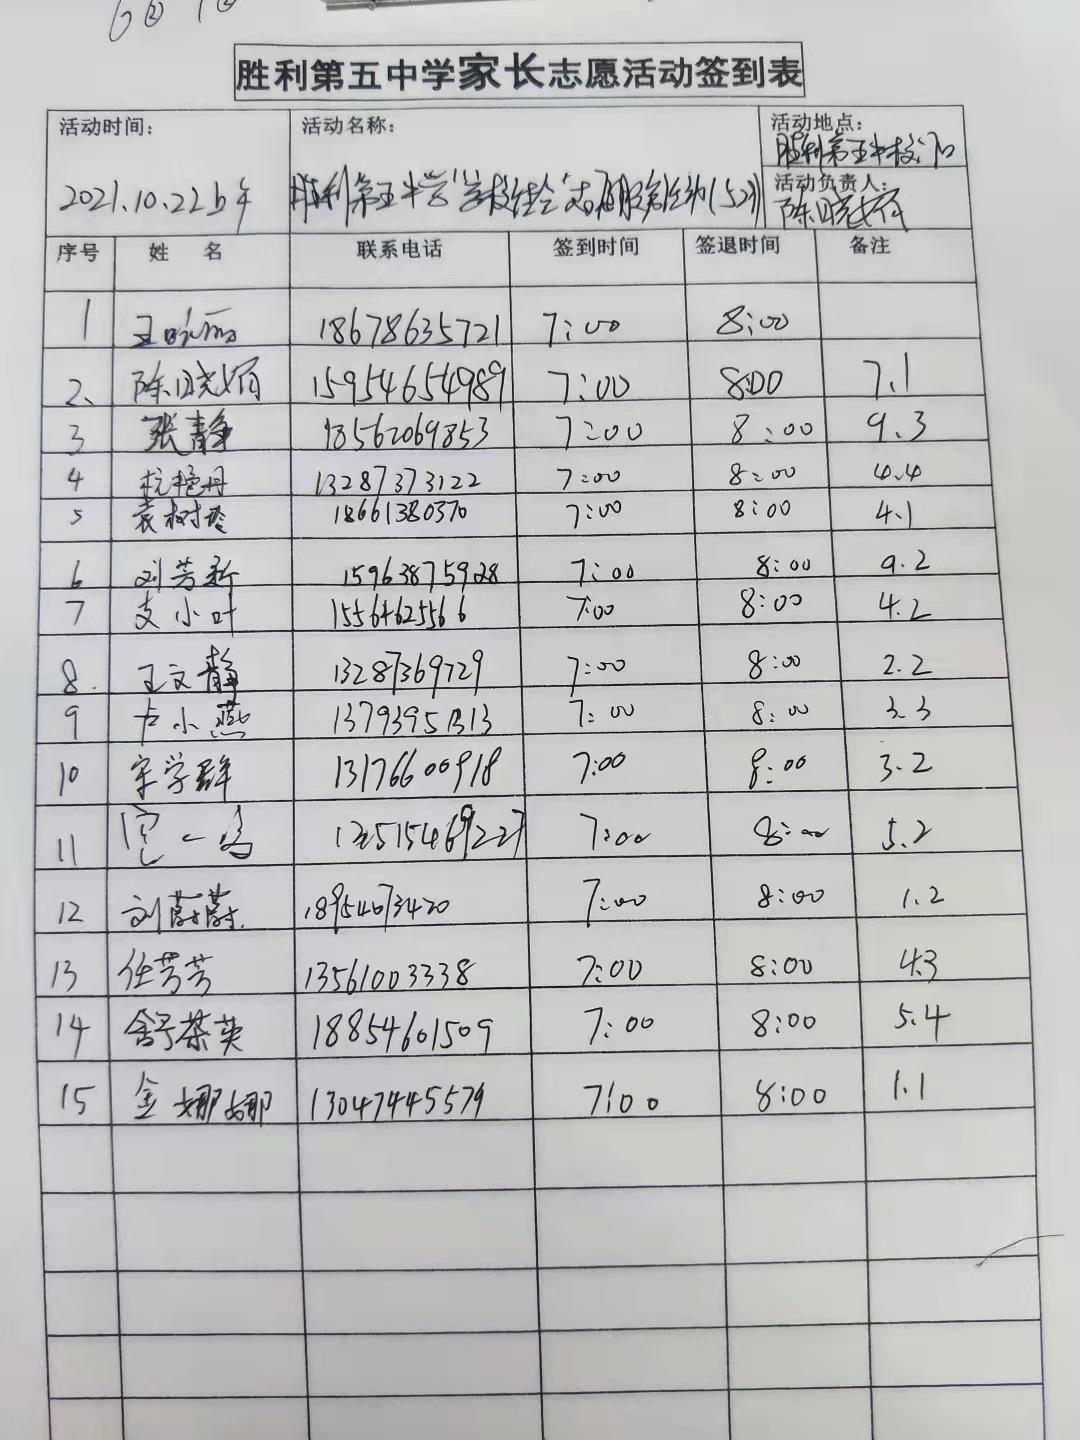 胜利第五中学家长志愿活动签到表
活动时间: 活动名称: 活动地点:
胜利第五中校门口
2021.10.22上午 胜利第五中学"学校结合"志愿服务活动(52) 活动负责人:
陈晓娟
序号 姓 名 联系电话 签到时间 签退时间 备注
1 王晓丽 18678635721 7:00 8:00
2、 陈晓娟 15954654989 7:00 8:00 7.1
3 张静 18562069853 7:00 8:00 9.3
4 杭艳丹 13287373122 7:00 8:00 4.4
5 袁树玲 18661380370 7:00 8:00 4.1
6 刘芳新 15963875928 7:00 8:00 9.2
7 支小叶 15564625566 7:00 8:00 4.2
8. 王文静 13287369729 7:00 8:00 2.2
9 卢小燕 13793951313 7:00 8:00 3.3
10 宋学群 13176600918 7:00 8:00 3.2
11 一鸣 7:00 8:00 5.2
12 刘蔚蔚. 18954673420 7:00 8:00 1.2
13 任芳芳 13561003338 7:00 8:00 4.3
14 舒荣英 18854601509 7:00 8:00 5.4
15 金娜娜 13047445579 7:00 8:00 1.1